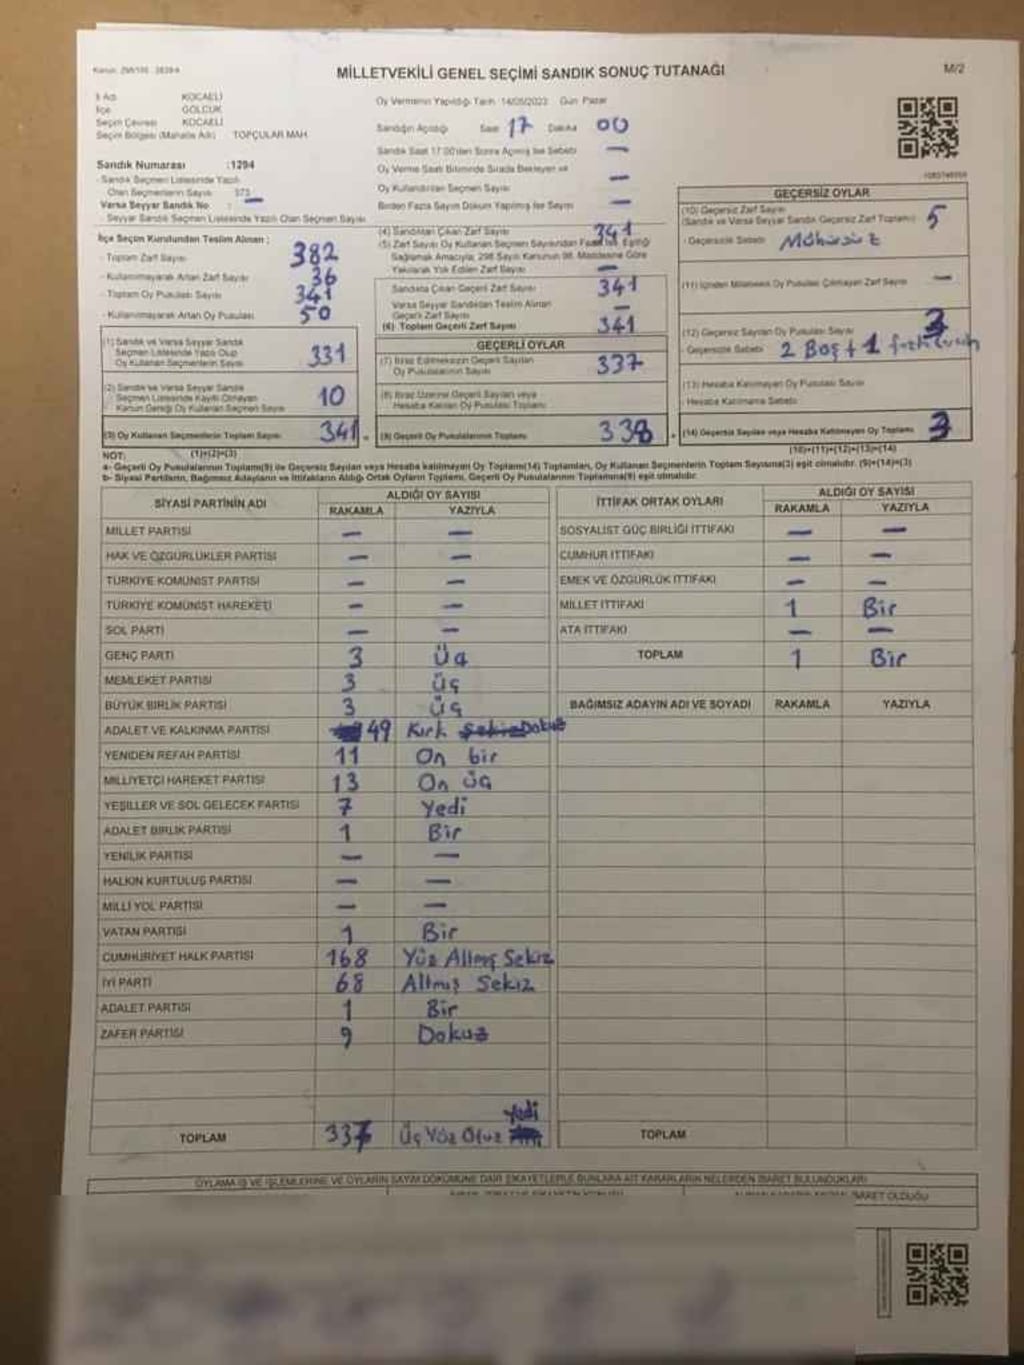 MİLLETVEKİLİ GENEL SEÇİMİ SANDIK SONUÇ TUTANAĞI
M/2
İl Adı KOCAELİ
İlçe GÖLCÜK
Seçim Çevresi KOCAELİ
Seçim Bölgesi (Mahalle Adı) TOPÇULAR MAH
Sandık Numarası :1294
- Sandık Seçmen Listesinde Yazılı
Olan Seçmenlerin Sayısı 373
Varsa Seyyar Sandık No : —
- Seyyar Sandık Seçmen Listesinde Yazılı Olan Seçmen Sayısı
Oy Vermenin Yapıldığı Tarih 14/05/2023 Gün Pazar
Sandığın Açıldığı Saat 17 Dakika 00
Sandık Saat 17:00'den Sonra Açılmış İse Sebebi —
Oy Verme Saati Bitiminde Sırada Bekleyen ve
Oy Kullandırılan Seçmen Sayısı —
Birden Fazla Sayım Döküm Yapılmış İse Sayısı —
İlçe Seçim Kurulundan Teslim Alınan :
- Toplam Zarf Sayısı 382
- Kullanılmayarak Artan Zarf Sayısı 36
- Toplam Oy Pusulası Sayısı 341
- Kullanılmayarak Artan Oy Pusulası 50
(1) Sandık ve Varsa Seyyar Sandık
Seçmen Listesinde Yazılı Olup
Oy Kullanan Seçmenlerin Sayısı 331
(2) Sandık ve Varsa Seyyar Sandık
Seçmen Listesinde Kayıtlı Olmayan
Kanun Gereği Oy Kullanan Seçmen Sayısı 10
(3) Oy Kullanan Seçmenlerin Toplam Sayısı 341
(1)+(2)=(3)
(4) Sandıktan Çıkan Zarf Sayısı 341
(5) Zarf Sayısı Oy Kullanan Seçmen Sayısından Fazla İse, Eşitliği
Sağlamak Amacıyla; 298 Sayılı Kanunun 98. Maddesine Göre
Yakılarak Yok Edilen Zarf Sayısı —
Sandıkta Çıkan Geçerli Zarf Sayısı 341
Varsa Seyyar Sandıktan Teslim Alınan
Geçerli Zarf Sayısı —
(6) Toplam Geçerli Zarf Sayısı 341
GEÇERLİ OYLAR
(7) İtiraz Edilmeksizin Geçerli Sayılan
Oy Pusulalarının Sayısı 337
(8) İtiraz Üzerine Geçerli Sayılan veya
Hesaba Katılan Oy Pusulası Toplamı
(9) Geçerli Oy Pusulalarının Toplamı 338
GEÇERSİZ OYLAR
(10) Geçersiz Zarf Sayısı
(Sandık ve Varsa Seyyar Sandık Geçersiz Zarf Toplamı) 5
- Geçersizlik Sebebi Mühürsüz
(11) İçinden Milletvekili Oy Pusulası Çıkmayan Zarf Sayısı —
(12) Geçersiz Sayılan Oy Pusulası Sayısı 3
- Geçersizlik Sebebi 2 Boş + 1
(13) Hesaba Katılmayan Oy Pusulası Sayısı
- Hesaba Katılmama Sebebi
(14) Geçersiz Sayılan veya Hesaba Katılmayan Oy Toplamı 3
(10)+(11)+(12)+(13)=(14)
NOT:
a- Geçerli Oy Pusulalarının Toplamı(9) ile Geçersiz Sayılan veya Hesaba katılmayan Oy Toplamı(14) Toplamları, Oy Kullanan Seçmenlerin Toplam Sayısına(3) eşit olmalıdır. (9)+(14)=(3)
b- Siyasi Partilerin, Bağımsız Adayların ve İttifakların Aldığı Ortak Oyların Toplamı, Geçerli Oy Pusulalarının Toplamına(9) eşit olmalıdır.
SİYASİ PARTİNİN ADI ALDIĞI OY SAYISI
RAKAMLA YAZIYLA
MİLLET PARTİSİ — —
HAK VE ÖZGÜRLÜKLER PARTİSİ — —
TÜRKİYE KOMÜNİST PARTİSİ — —
TÜRKİYE KOMÜNİST HAREKETİ — —
SOL PARTİ — —
GENÇ PARTİ 3 Üç
MEMLEKET PARTİSİ 3 Üç
BÜYÜK BİRLİK PARTİSİ 3 Üç
ADALET VE KALKINMA PARTİSİ 49 Kırk Sekiz Dokuz
YENİDEN REFAH PARTİSİ 11 On bir
MİLLİYETÇİ HAREKET PARTİSİ 13 On üç
YEŞİLLER VE SOL GELECEK PARTİSİ 7 Yedi
ADALET BİRLİK PARTİSİ 1 Bir
YENİLİK PARTİSİ — —
HALKIN KURTULUŞ PARTİSİ — —
MİLLİ YOL PARTİSİ — —
VATAN PARTİSİ 1 Bir
CUMHURİYET HALK PARTİSİ 168 Yüz Altmış Sekiz
İYİ PARTİ 68 Altmış Sekiz
ADALET PARTİSİ 1 Bir
ZAFER PARTİSİ 9 Dokuz
TOPLAM 337 Üç Yüz Otuz Yedi
İTTİFAK ORTAK OYLARI ALDIĞI OY SAYISI
RAKAMLA YAZIYLA
SOSYALİST GÜÇ BİRLİĞİ İTTİFAKI — —
CUMHUR İTTİFAKI — —
EMEK VE ÖZGÜRLÜK İTTİFAKI — —
MİLLET İTTİFAKI 1 Bir
ATA İTTİFAKI — —
TOPLAM 1 Bir
BAĞIMSIZ ADAYIN ADI VE SOYADI RAKAMLA YAZIYLA
TOPLAM
OYLAMA İŞ VE İŞLEMLERİNE VE OYLARIN SAYIM DÖKÜMÜNE DAİR ŞİKAYETLERLE BUNLARA AİT KARARLARIN NELERDEN İBARET BULUNDUKLARI